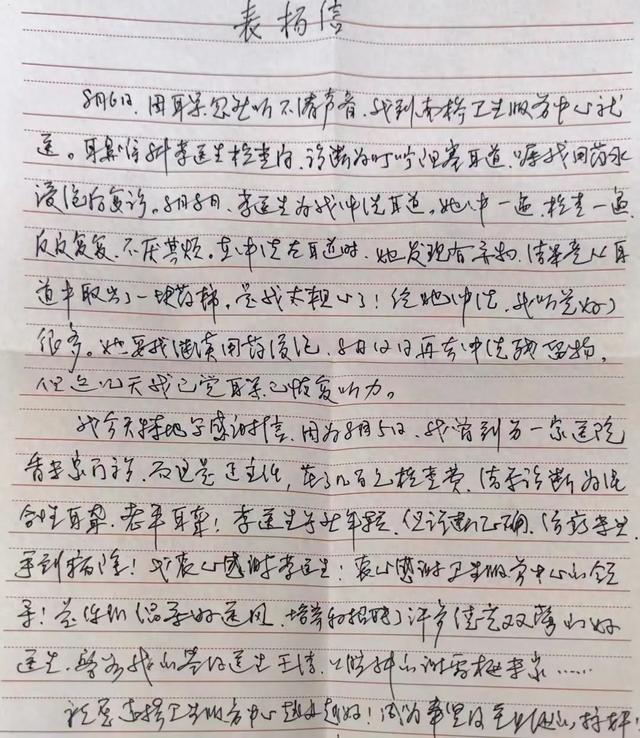 表扬信
8月6日,因耳朵忽然听不清声音,我到南桥卫生服务中心就
医。耳鼻喉科李医生检查后,诊断为叮咛阻塞耳道,嘱我用药水
浸泡后复诊。8月8日,李医生为我冲洗耳道。她冲一遍,检查一遍
反反复复,不厌其烦。在冲洗左耳道时,她发现有异物,结果竟从耳
道中取出了一块药棉,是我太粗心了!经她冲洗,我听觉好了
很多。她要我继续用药浸泡,8月12日再去冲洗残留物,
但这几天我已觉耳朵已恢复听力。
我今天特地写感谢信,因为8月5日,我曾到另一家医院
看专家门诊,还是主任,花了几百元检查费,结果诊断为混
合性耳聋,老年耳聋!李医生年轻,但诊断正确,治疗学生
手到病除!我衷心感谢李医生!衷心感谢卫生服务中心的领
导!是你们倡导好医风,培养和招聘了许多德艺双馨的好
医生,
祝愿南桥卫生服务中心越办越好!